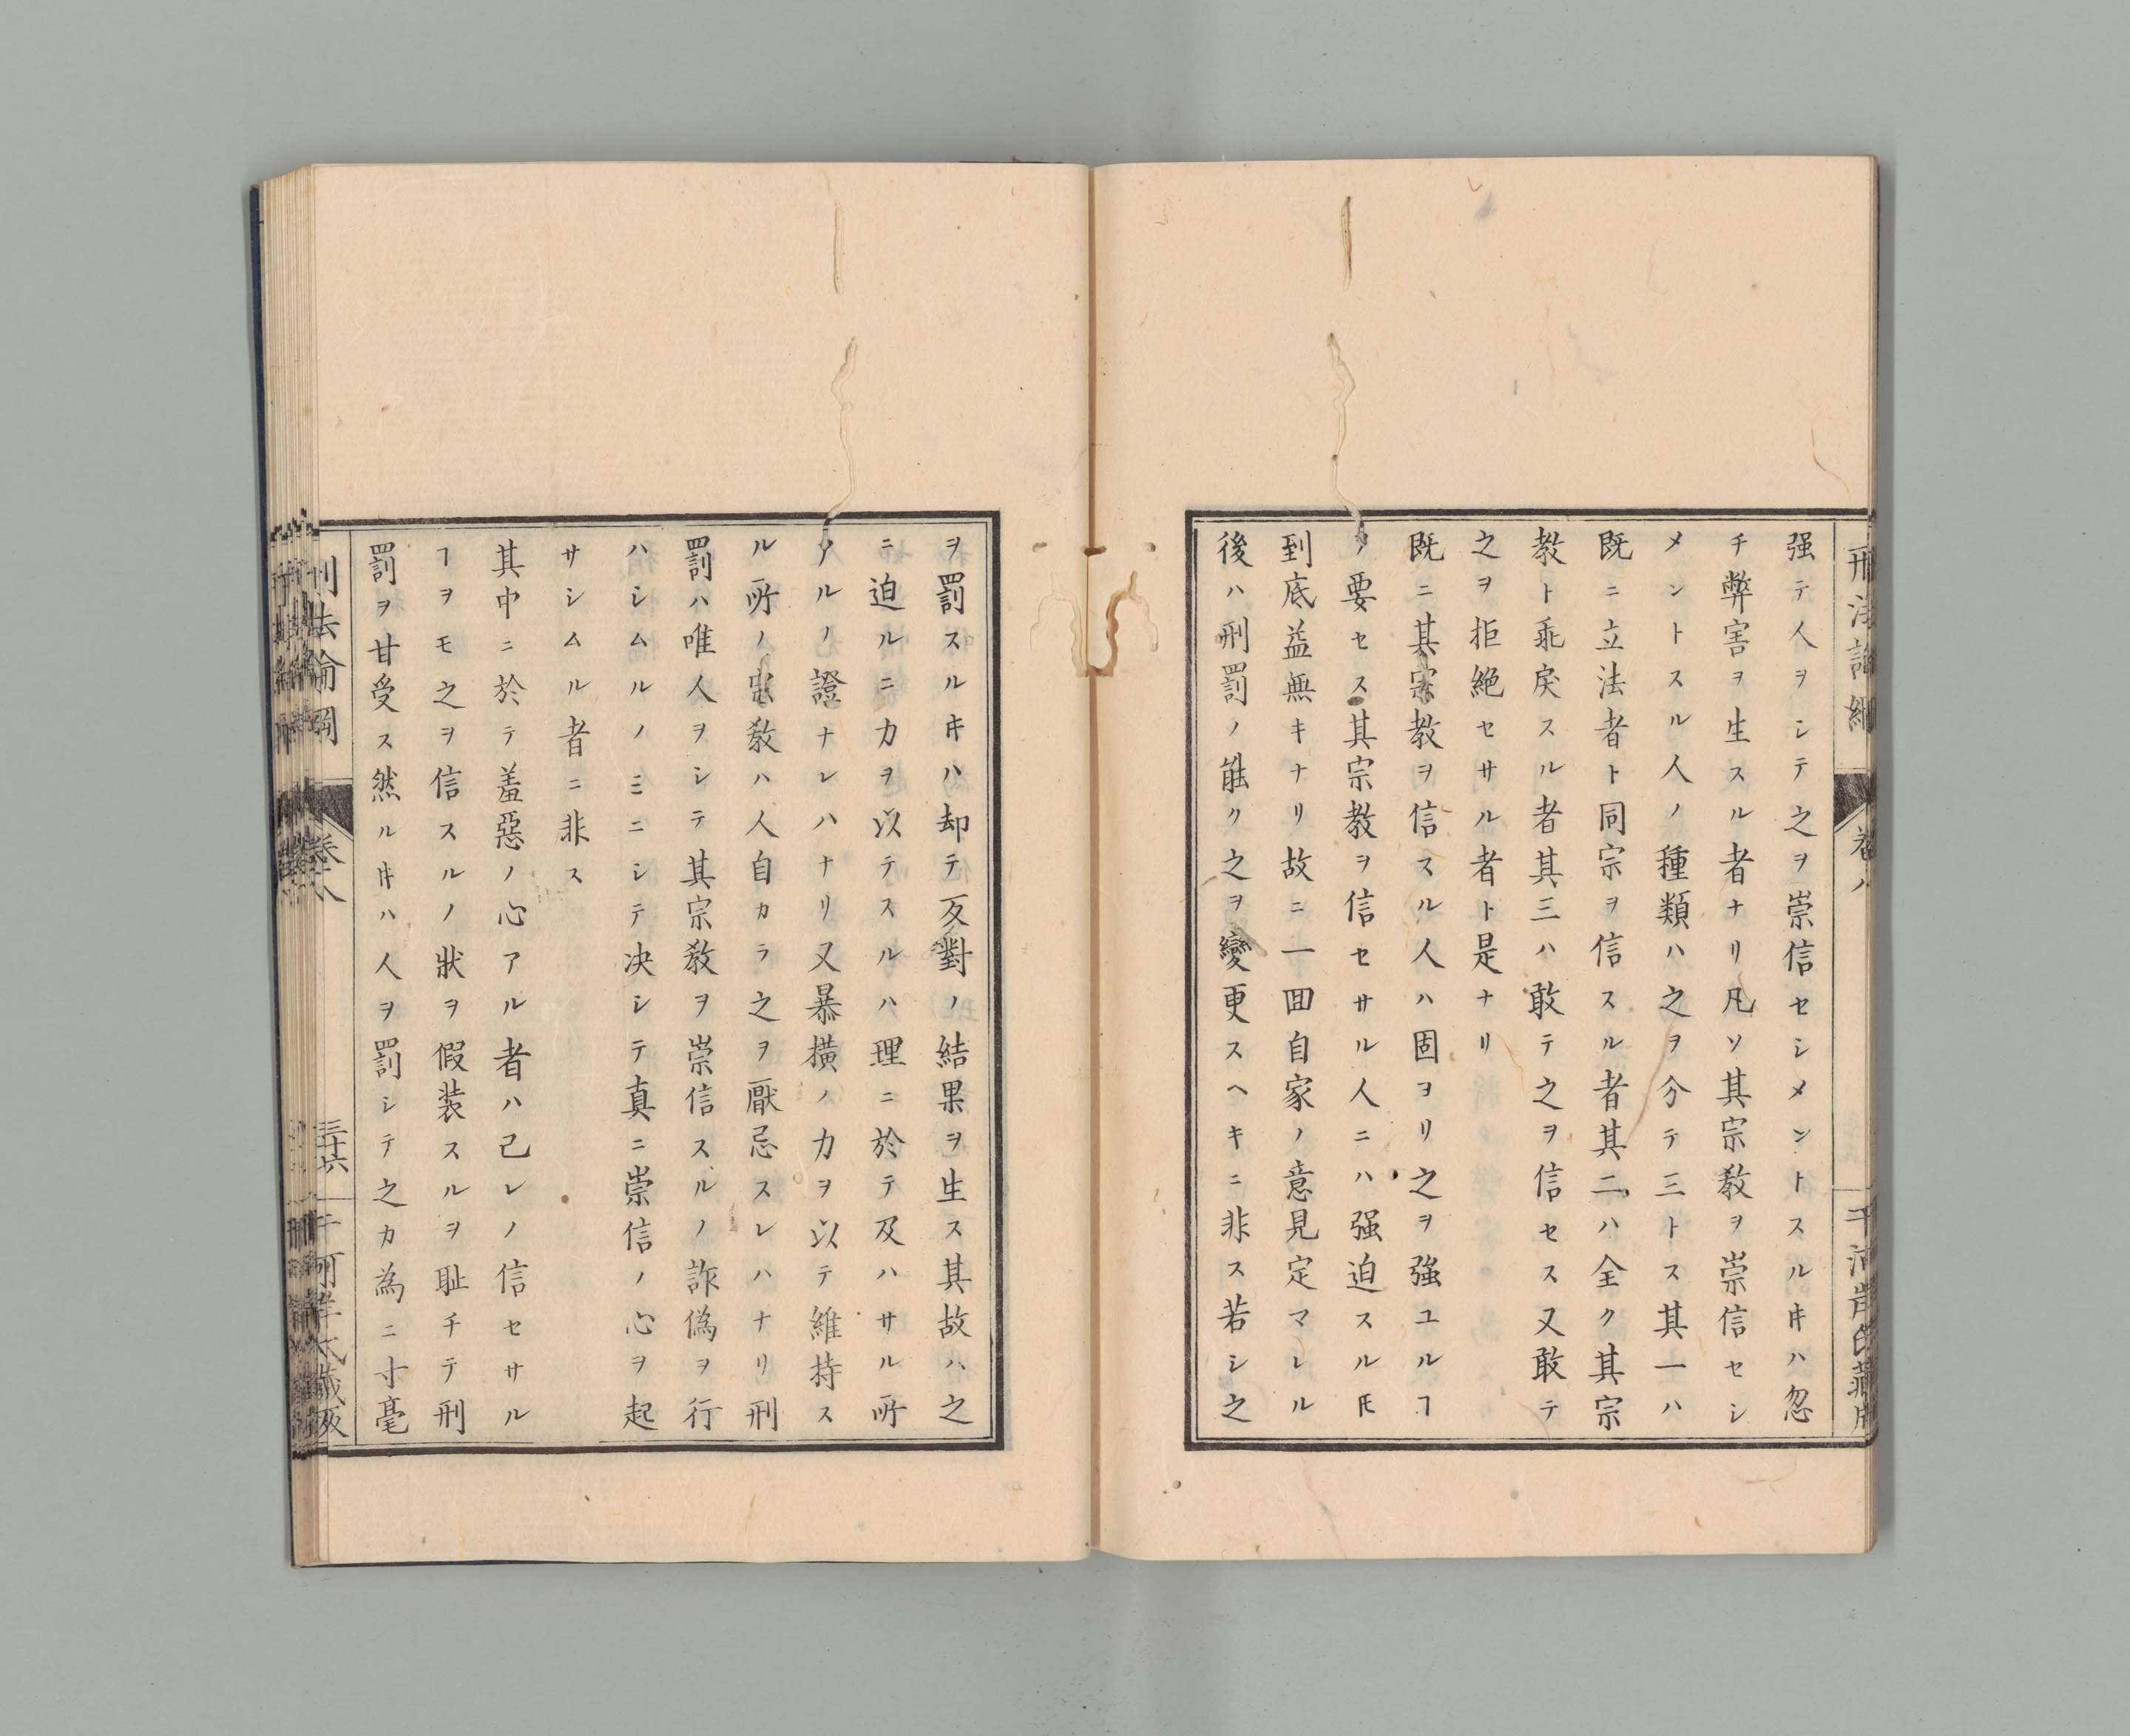 强テ人ヲシテ之ヲ崇信セシメントスルキハ忽
チ弊害ヲ生スル者ナリ凡ソ其宗教ヲ崇信セシ
メントスル人ノ種類ハ之ヲ分テ三トス其一ハ
既ニ立法者ト同宗ヲ信スル者其二ハ全ク其宗
教ト乖戾スル者其三ハ敢テ之ヲ信セス又敢テ
之ヲ拒絶セサル者ト是ナリ
既ニ其宗教ヲ信スル人ハ固ヨリ之ヲ強ユルヿ
ノ要セス其宗教ヲ信セサル人ニハ强迫スル𪜈
到底益無キナリ故ニ一回自家ノ意見定マレル
後ハ刑罰ノ能ク之ヲ變更スヘキニ非ス若シ之
ヲ罰スルキハ却テ反對ノ結果ヲ生ス其故ハ之
ニ迫ルニ力ヲ以テスルハ理ニ於テ及ハサル所
アルノ證ナレハナリ又暴橫ノ力ヲ以テ維持ス
ル所ノ宗教ハ人自カラ之ヲ厭忌スレハナリ刑
罰ハ唯人ヲシテ其宗教ヲ崇信スルノ詐偽ヲ行
ハシムルノミニシテ决シテ真ニ崇信ノ心ヲ起
サシムル者ニ非ス
其中ニ於テ羞惡ノ心アル者ハ己レノ信セサル
ヿヲモ之ヲ信スルノ狀ヲ假装スルヲ耻チテ刑
罰ヲ甘受ス然ルキハ人ヲ罰シテ之カ為ニ寸毫
刑法論綱
卷八
三十六